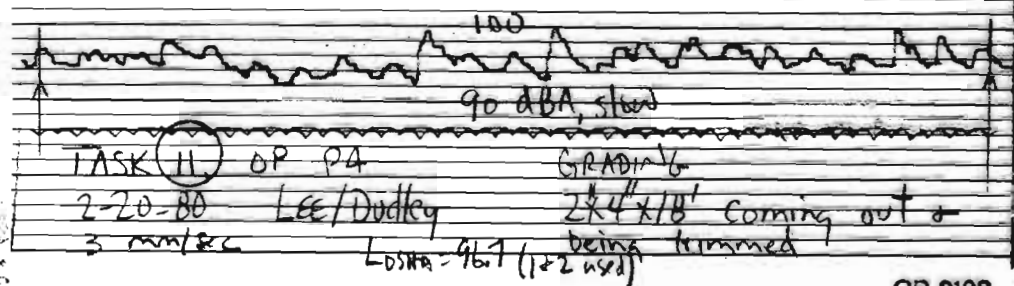 100
90 dBA, slow
TASK 11 OP P4 GRADING
2-20-80 LEE/Dudley 2"x4"x18' coming out &
3 mm/sec being trimmed
LOSHA = 96.7 (1&2 used)